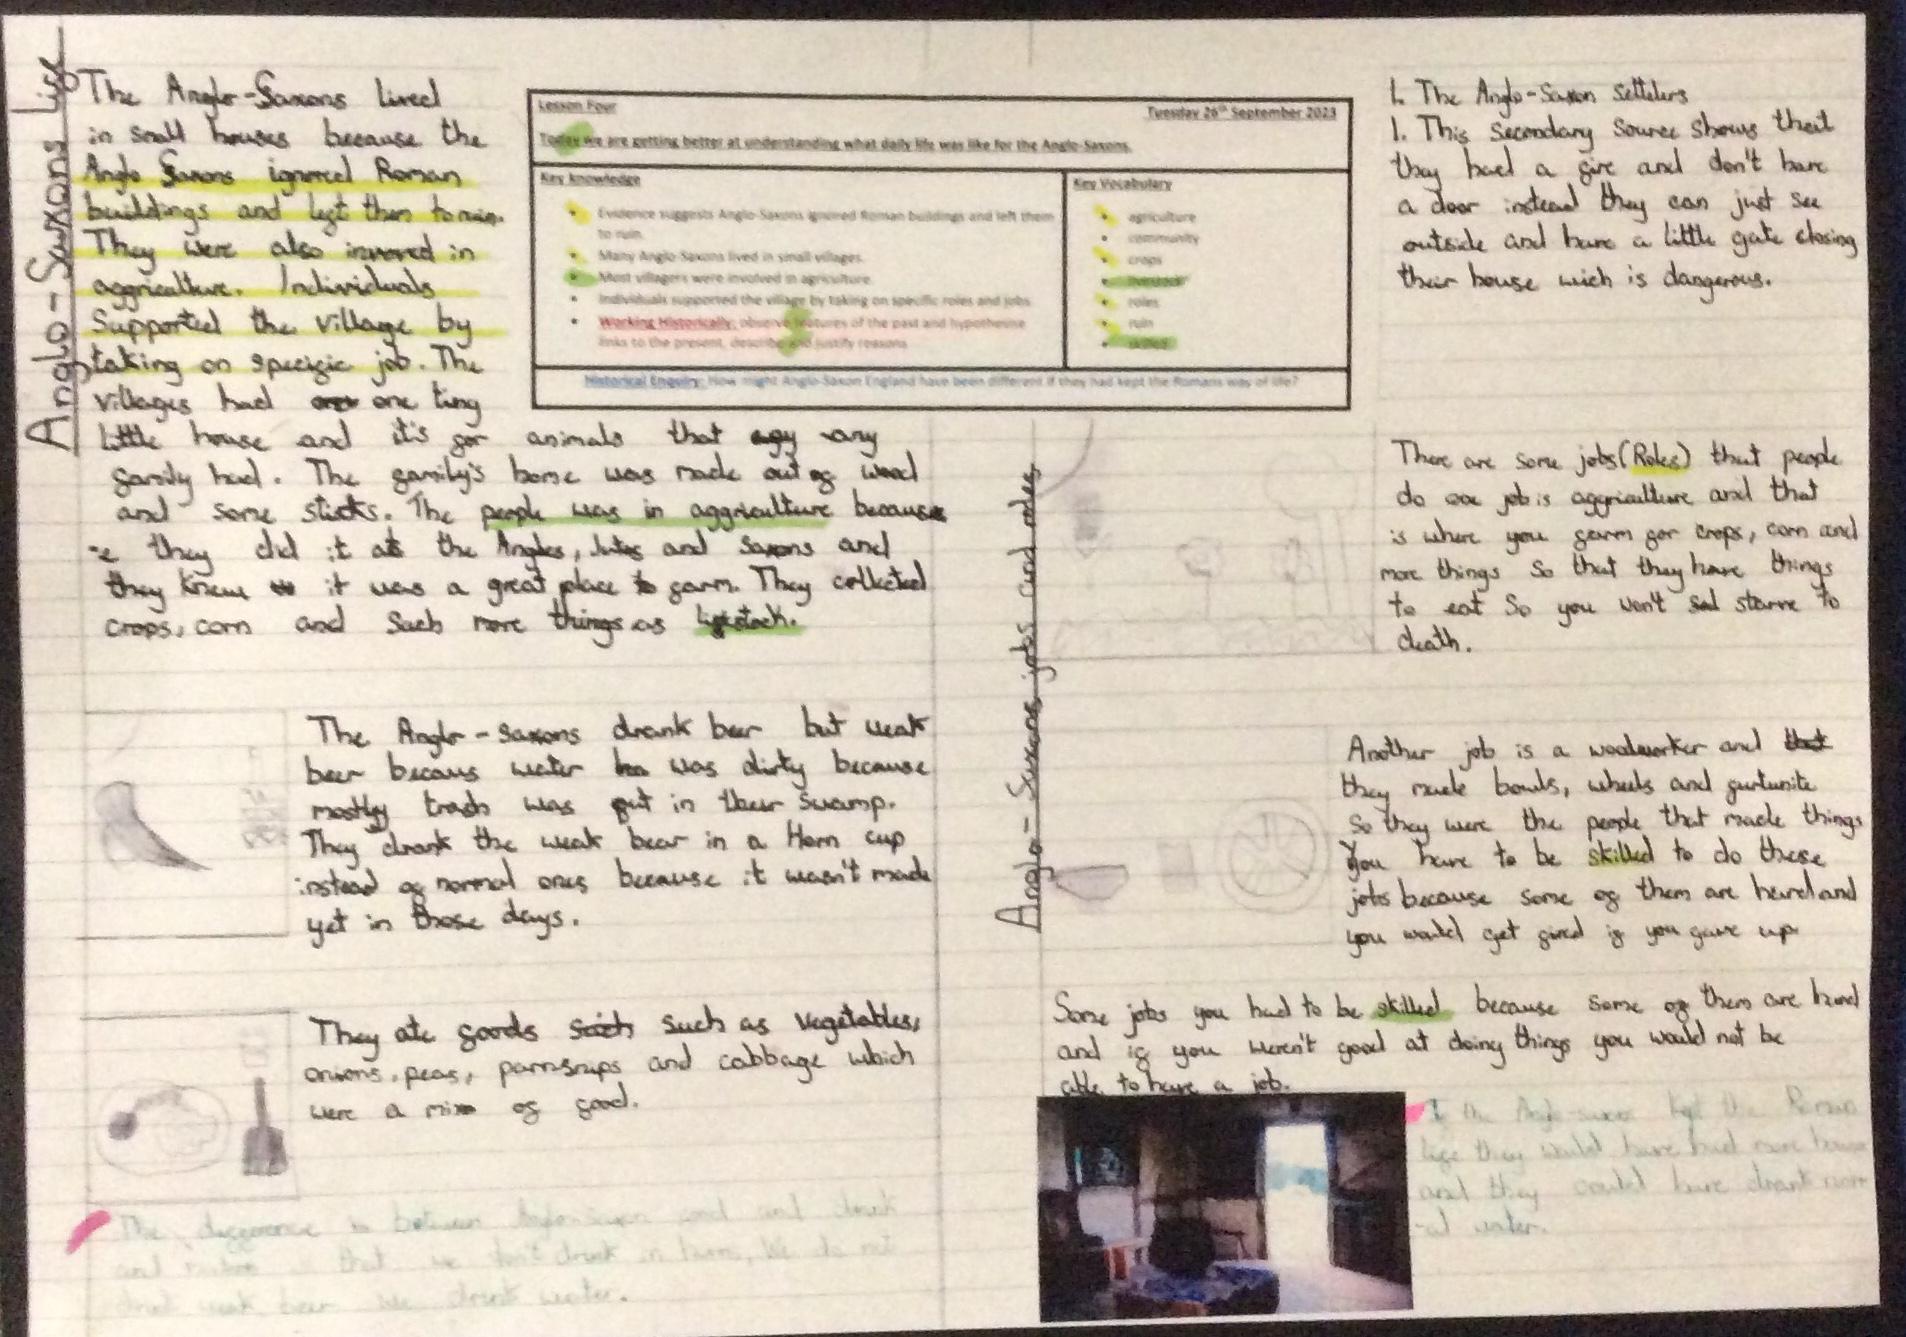 Anglo-Saxons Life
The Anglo-Saxons lived
in small houses because the
Anglo Saxons ignored Roman
buildings and left them to ruin.
They were also invoved in
aggriculture. Individuals
Supported the village by
taking on specific job. The
villages had one
little house and it's for animals that any
family had. The family's home was made out of wood
and some sticks. The people was in aggriculture because
they did it at the Angles, Jutes and Saxons and
they knew it was a great place to farm. They collected
crops, corn and Such more things as livestock.
The Anglo-Saxons drank beer but weak
beer becaus water was dirty because
mostly trash was put in their swamp.
They drank the weak bear in a Horn cup
instead of normal ones because it wasn't made
yet in those days.
They ate foods such as vegetables,
onions, peas, parnsnips and cabbage which
were a mix of food.
The difference between Anglo-Saxon food and drink
and is that we don't drink in horns, We do not
drink weak beer we drink water.
Lesson Four
Tuesday 26th September 2023
Today we are getting better at understanding what daily life was like for the Anglo-Saxons.
Key Knowledge
Evidence suggests Anglo-Saxons ignored Roman buildings and left them
to ruin.
Many Anglo-Saxons lived in small villages.
Most villagers were involved in agriculture.
Individuals supported the village by taking on specific roles and jobs
Working Historically: observe features of the past and hypothesise
links to the present, describe and justify reasons
Key Vocabulary
agriculture
community
crops
livestock
roles
ruin
skilled
Historical Enquiry: How might Anglo-Saxon England have been different if they had kept the Romans way of life?
Anglo-Saxons jobs and roles
1. The Anglo-Saxon Settelers
1. This Secondary Source shows that
they had a fire and don't have
a door instead they can just see
outside and have a little gate closing
their house wich is dangerous.
There are some jobs (Roles) that people
do one job is aggriculture and that
is where you farm for crops, corn and
more things So that they have things
to eat So you won't starve to
death.
Another job is a woodworker and
they made bowls, wheels and furtunite
So they were the people that made things
You have to be skilled to do these
jobs because some of them are hard and
you would get fired if you gave up
Some jobs you had to be skilled because some of them are hard
and if you weren't good at doing things you would not be
able to have a job.
If the Anglo-Saxons kept the Roman
life they would have had more house
and they could have drank norm
-al water.